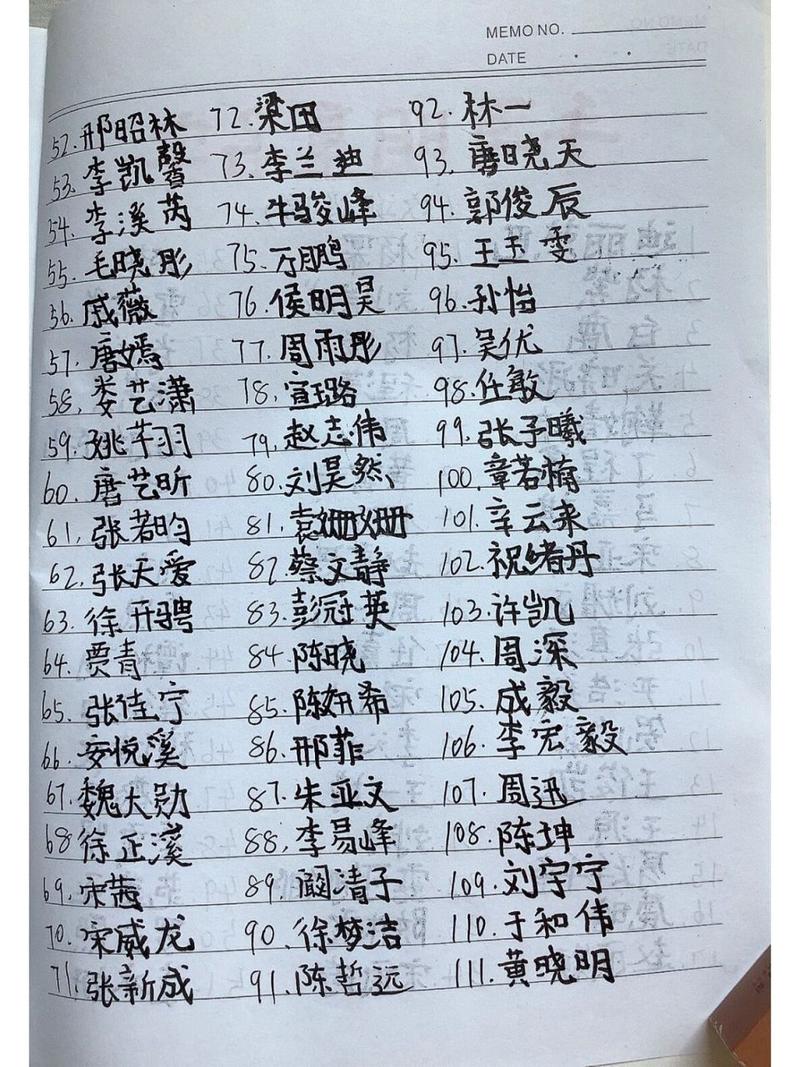 MEMO NO.
DATE
52.邢昭林 72.梁田 92.林一
53.李凯馨 73.李兰迪 93.唐晓天
54.李溪芮 74.牛骏峰 94.郭俊辰
55.毛晓彤 75.万鹏 95.王玉雯
56.戚薇 76.侯明昊 96.孙怡
57.唐嫣 77.周雨彤 97.吴优
58.娄艺潇 78.宣璐 98.任敏
59.姚芊羽 79.赵志伟 99.张予曦
60.唐艺昕 80.刘昊然 100.章若楠
61.张若昀 81.袁姗姗 101.辛云来
62.张天爱 82.蔡文静 102.祝绪丹
63.徐开骋 83.彭冠英 103.许凯
64.贾青 84.陈晓 104.周深
65.张佳宁 85.陈妍希 105.成毅
66.安悦溪 86.邢菲 106.李宏毅
67.魏大勋 87.朱亚文 107.周迅
68.徐正溪 88.李易峰 108.陈坤
69.宋茜 89.阚清子 109.刘宇宁
70.宋威龙 90.徐梦洁 110.于和伟
71.张新成 91.陈哲远 111.黄晓明